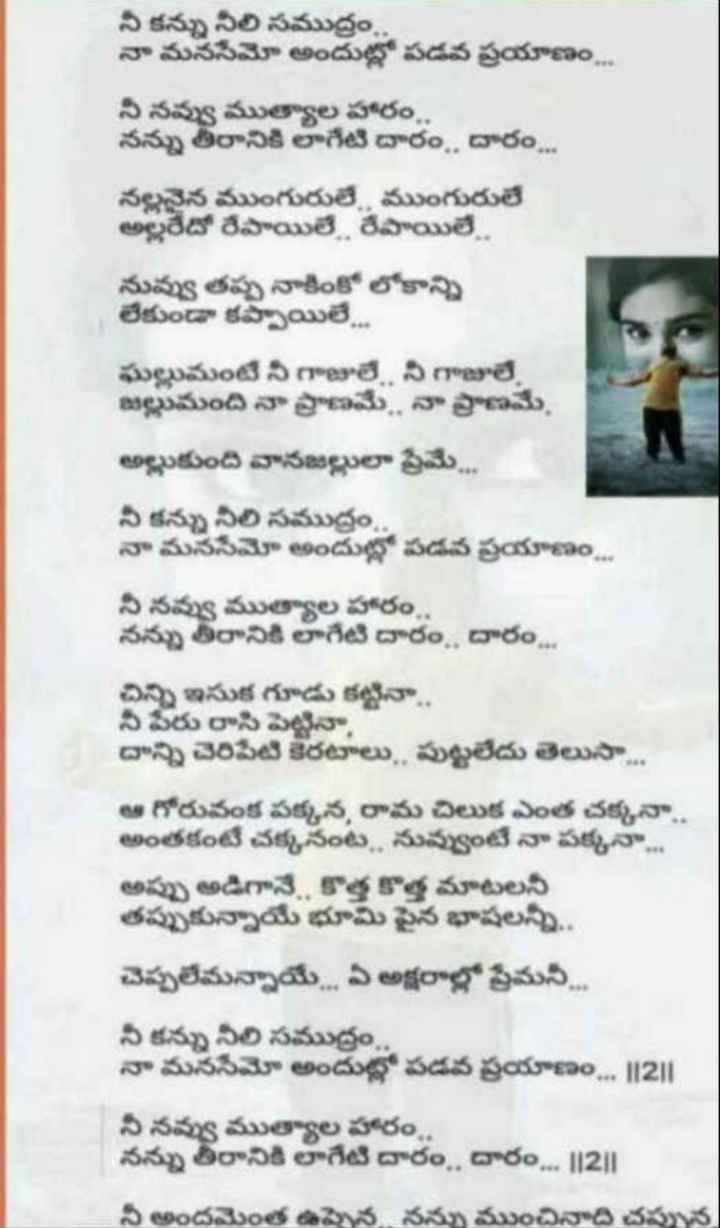 నీ కన్ను నీలి సముద్రం..
నా మనసేమో అందుట్లో పడవ ప్రయాణం...
నీ నవ్వు ముత్యాల హారం..
నన్ను తీరానికి లాగేటి దారం.. దారం...
నల్లనైన ముంగురులే.. ముంగురులే
అల్లరేదో రేపాయిలే.. రేపాయిలే..
నువ్వు తప్ప నాకింకో లోకాన్ని
లేకుండా కప్పాయిలే...
ఘల్లుమంటే నీ గాజులే.. నీ గాజులే.
జల్లుమంది నా ప్రాణమే.. నా ప్రాణమే.
అల్లుకుంది వానజల్లులా ప్రేమే...
నీ కన్ను నీలి సముద్రం..
నా మనసేమో అందుట్లో పడవ ప్రయాణం...
నీ నవ్వు ముత్యాల హారం..
నన్ను తీరానికి లాగేటి దారం.. దారం...
చిన్ని ఇసుక గూడు కట్టినా..
నీ పేరు రాసి పెట్టినా.
దాన్ని చెరిపేటి కెరటాలు.. పుట్టలేదు తెలుసా...
ఆ గోరువంక పక్కన, రామ చిలుక ఎంత చక్కనా..
అంతకంటే చక్కనంట.. నువ్వుంటే నా పక్కనా...
అప్పు అడిగానే.. కొత్త కొత్త మాటలనీ
తప్పుకున్నాయే భూమి పైన భాషలన్నీ..
చెప్పలేమన్నాయే... ఏ అక్షరాల్లో ప్రేమనీ...
నీ కన్ను నీలి సముద్రం..
నా మనసేమో అందుట్లో పడవ ప్రయాణం... ||2||
నీ నవ్వు ముత్యాల హారం..
నన్ను తీరానికి లాగేటి దారం.. దారం... ||2||
నీ అందమెంత ఉప్పెన.. నన్ను ముంచినాది చప్పున